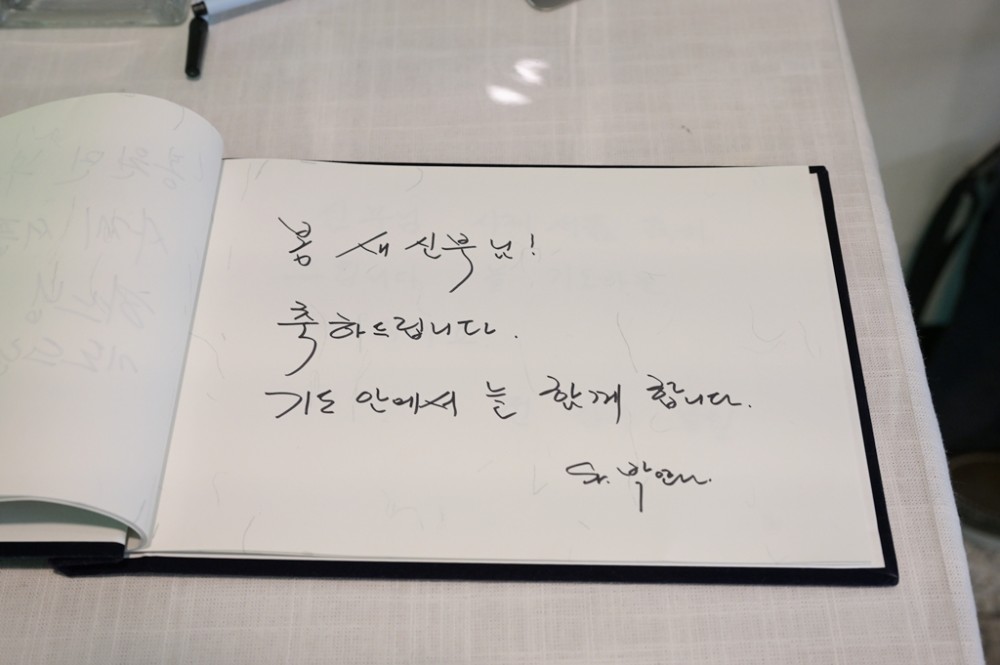 봉 새 신부님!
축하드립니다.
기도 안에서 늘 함께 합니다.
Sr. 박